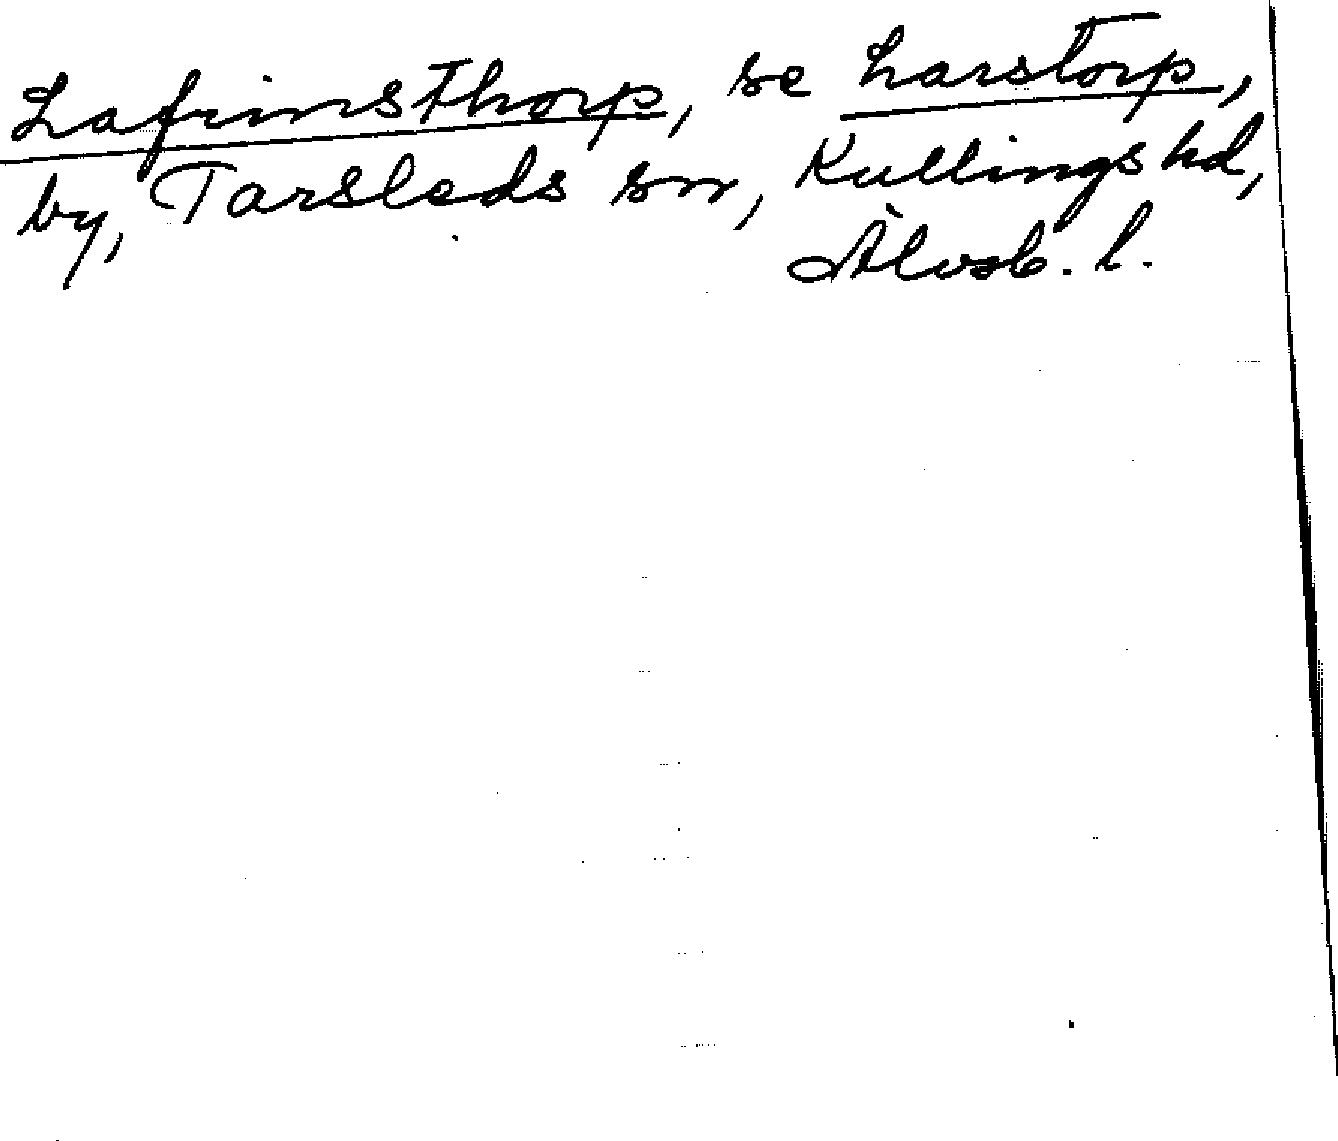 Lafrinsthorp, se Larstorp,
by, Tarsleds sn, Kullings hd,
Älvsb. l.